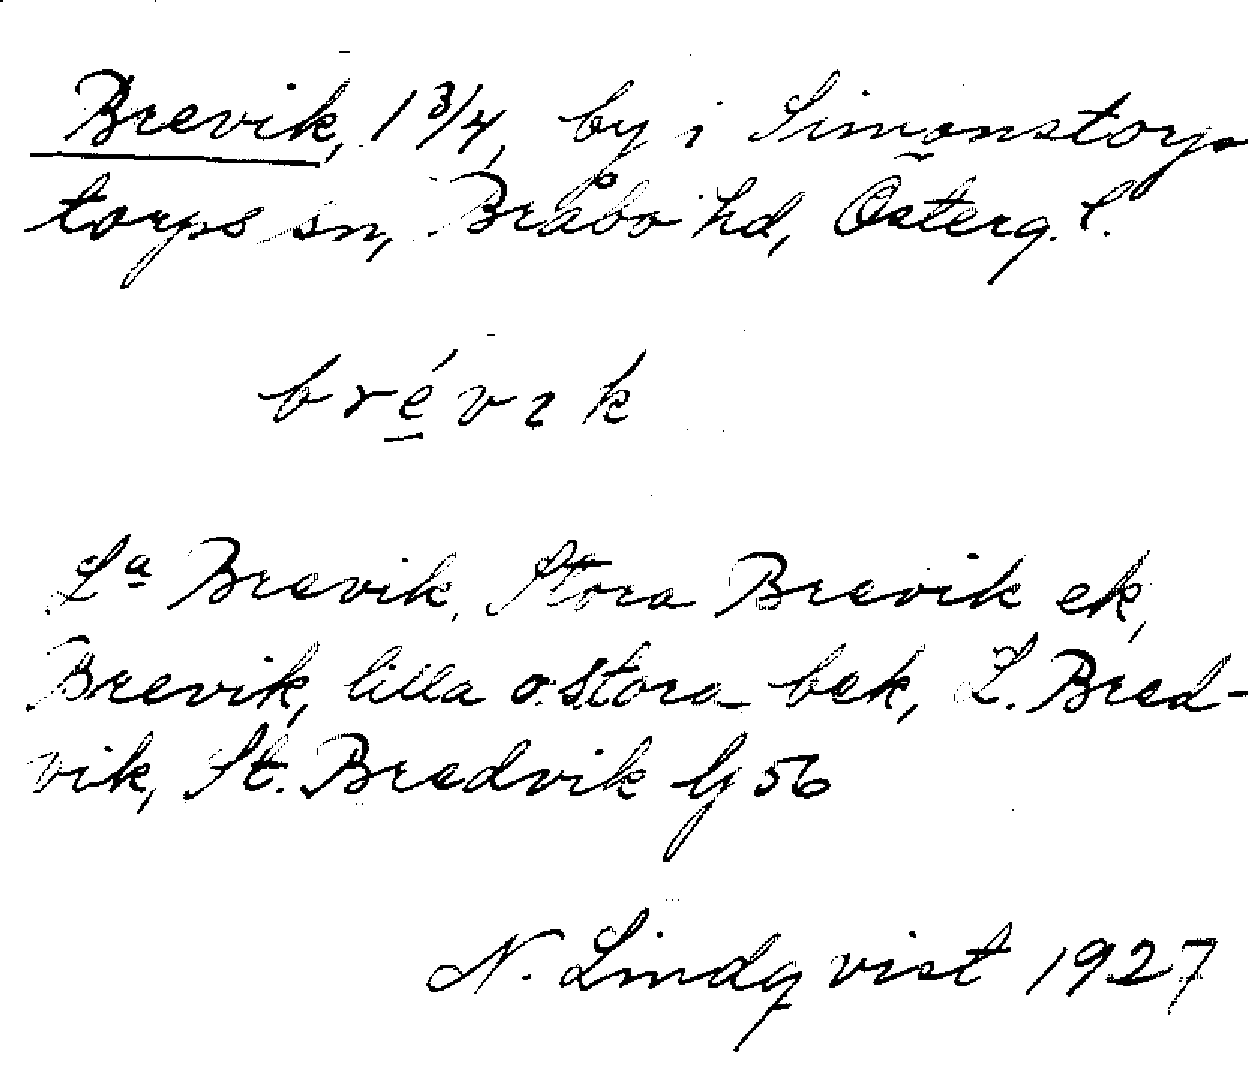 Brevik, 1 3/4, by i Simonstorps
torps sn, Bråbo hd, Österg. l.
brévik
La Brevik, Stora Brevik ek,
Brevik, lilla o. stora bek, L. Bred-
vik, St. Bredvik Gj 56
N. Lindqvist 1927